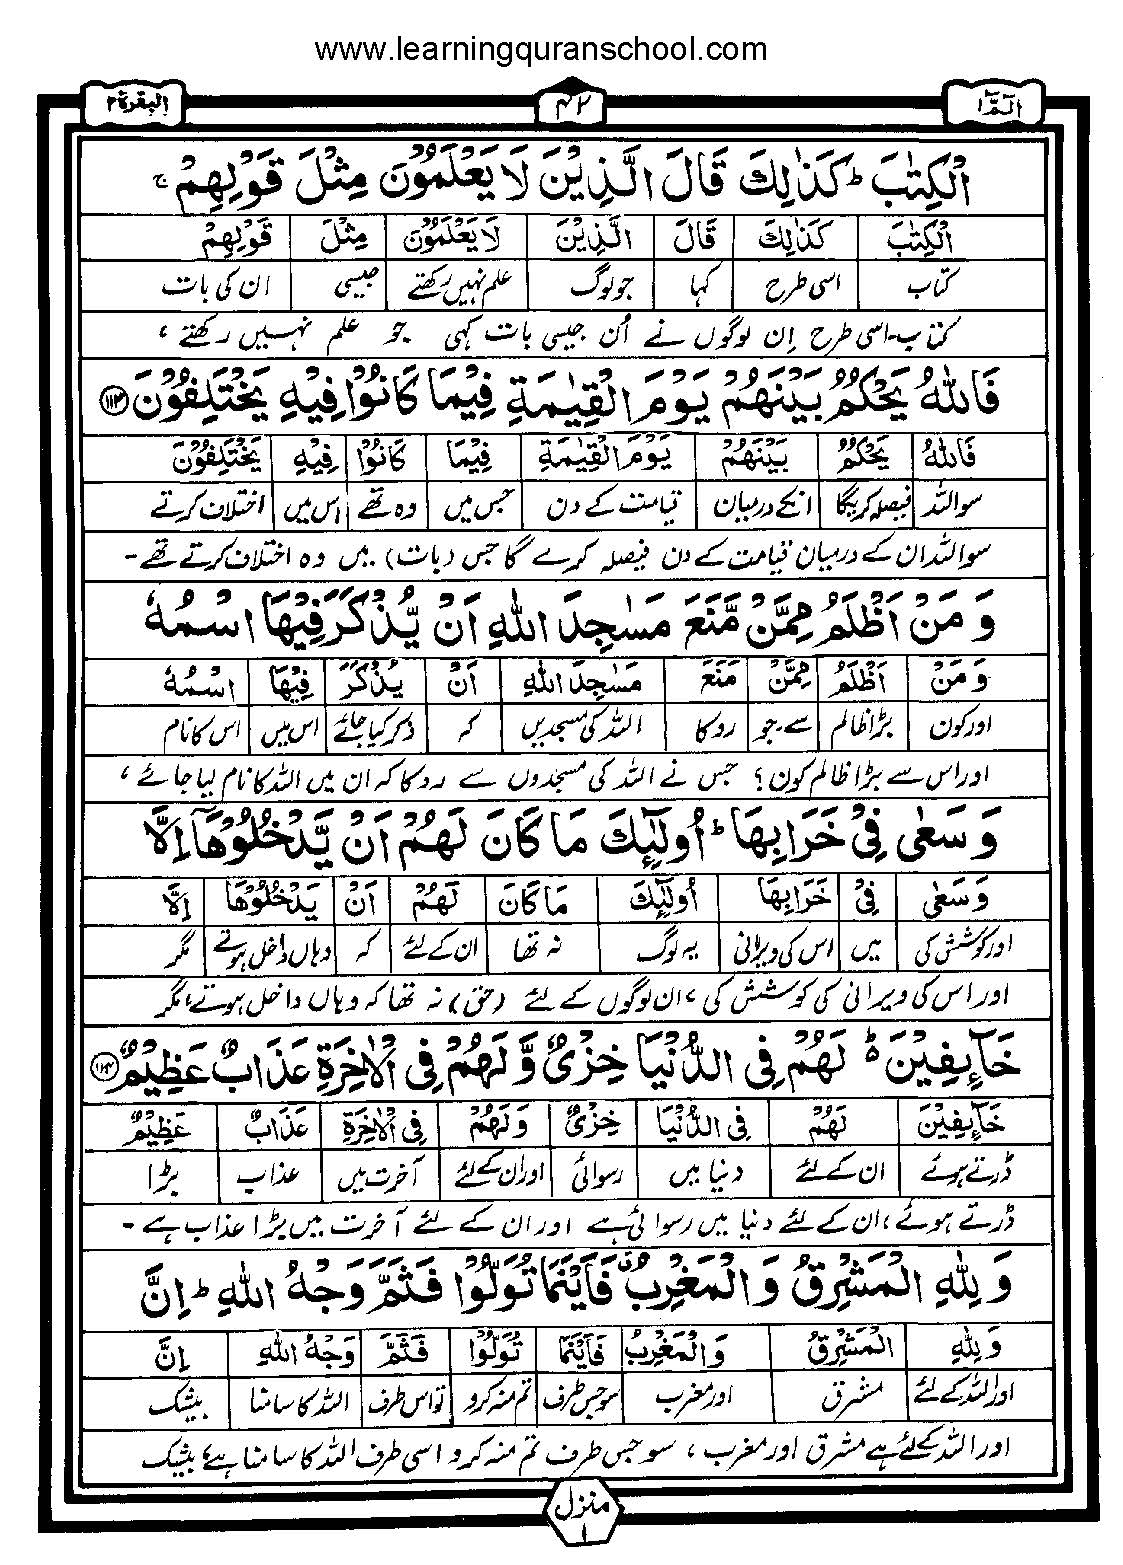 www.learningquranschool.com
الٓمّٓ ١ ۴۲ البقرة ٢
الْكِتٰبَ ؕ كَذٰلِكَ قَالَ الَّذِيْنَ لَا يَعْلَمُوْنَ مِثْلَ قَوْلِهِمْ ۚ
الْكِتٰبَ كَذٰلِكَ قَالَ الَّذِيْنَ لَا يَعْلَمُوْنَ مِثْلَ قَوْلِهِمْ
کتاب اسی طرح کہا جو لوگ علم نہیں رکھتے جیسی ان کی بات
کتاب۔ اسی طرح اِن لوگوں نے اُن جیسی بات کہی جو علم نہیں رکھتے ،
فَاللّٰهُ يَحْكُمُ بَيْنَهُمْ يَوْمَ الْقِيٰمَةِ فِيْمَا كَانُوْا فِيْهِ يَخْتَلِفُوْنَ ۝١١٣
فَاللّٰهُ يَحْكُمُ بَيْنَهُمْ يَوْمَ الْقِيٰمَةِ فِيْمَا كَانُوْا فِيْهِ يَخْتَلِفُوْنَ
سو اللہ فیصلہ کریگا انکے درمیان قیامت کے دن جس میں وہ تھے اس میں اختلاف کرتے
سو اللہ ان کے درمیان قیامت کے دن فیصلہ کرے گا جس (بات) میں وہ اختلاف کرتے تھے۔
وَ مَنْ اَظْلَمُ مِمَّنْ مَّنَعَ مَسٰجِدَ اللّٰهِ اَنْ يُّذْكَرَ فِيْهَا اسْمُهٗ
وَ مَنْ اَظْلَمُ مِمَّنْ مَنَعَ مَسٰجِدَ اللّٰهِ اَنْ يُذْكَرَ فِيْهَا اسْمُهٗ
اور کون بڑا ظالم سے۔جو روکا اللہ کی مسجدیں کہ ذکر کیا جائے اس میں اس کا نام
اور اس سے بڑا ظالم کون؟ جس نے اللہ کی مسجدوں سے روکا کہ ان میں اللہ کا نام لیا جائے ،
وَ سَعٰى فِيْ خَرَابِهَا ؕ اُولٰٓئِكَ مَا كَانَ لَهُمْ اَنْ يَّدْخُلُوْهَاۤ اِلَّا
وَ سَعٰى فِيْ خَرَابِهَا اُولٰٓئِكَ مَا كَانَ لَهُمْ اَنْ يَدْخُلُوْهَا اِلَّا
اور کوشش کی میں اس کی ویرانی یہ لوگ نہ تھا ان کے لئے کہ وہاں داخل ہوتے مگر
اور اس کی ویرانی کی کوشش کی ، ان لوگوں کے لئے (حق) نہ تھا کہ وہاں داخل ہوتے، مگر
خَآئِفِيْنَ ؕ۬ لَهُمْ فِي الدُّنْيَا خِزْيٌ وَّ لَهُمْ فِي الْاٰخِرَةِ عَذَابٌ عَظِيْمٌ ۝١١٤
خَآئِفِيْنَ لَهُمْ فِي الدُّنْيَا خِزْيٌ وَ لَهُمْ فِي الْاٰخِرَةِ عَذَابٌ عَظِيْمٌ
ڈرتے ہوئے ان کے لئے دنیا میں رسوائی اور ان کے لئے آخرت میں عذاب بڑا
ڈرتے ہوئے ، ان کے لئے دنیا میں رسوائی ہے اور ان کے لئے آخرت میں بڑا عذاب ہے۔
وَ لِلّٰهِ الْمَشْرِقُ وَ الْمَغْرِبُ ۗ فَاَيْنَمَا تُوَلُّوْا فَثَمَّ وَجْهُ اللّٰهِ ؕ اِنَّ
وَ لِلّٰهِ الْمَشْرِقُ وَ الْمَغْرِبُ فَاَيْنَمَا تُوَلُّوْا فَثَمَّ وَجْهُ اللّٰهِ اِنَّ
اور اللہ کے لئے مشرق اور مغرب سو جس طرف تم منہ کرو تو اس طرف اللہ کا سامنا بیشک
اور اللہ کے لئے ہے مشرق اور مغرب ، سو جس طرف تم منہ کرو اسی طرف اللہ کا سامنا ہے، بیشک
منزل ١